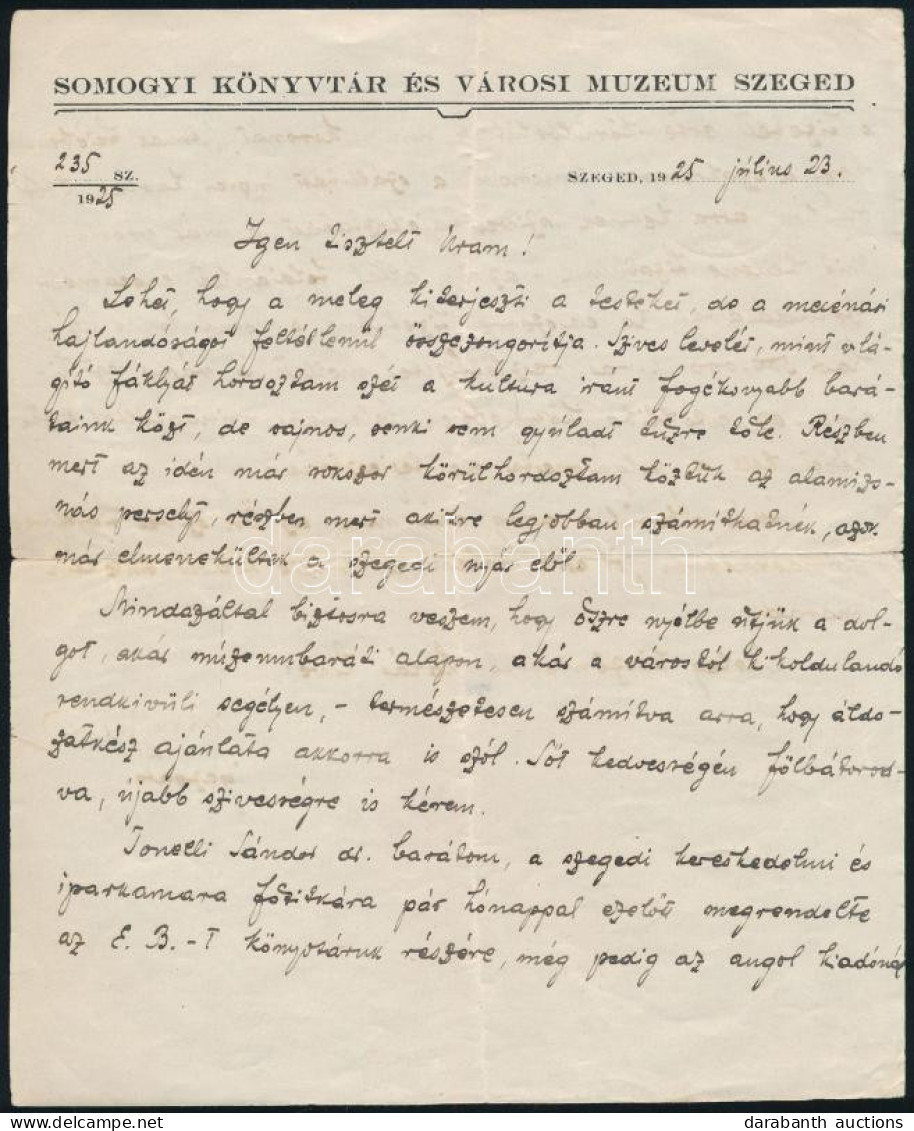 SOMOGYI KÖNYVTÁR ÉS VÁROSI MUZEUM SZEGED
235 SZ.
1925
SZEGED, 1925 július 23.
Igen tisztelt Uram!
Lehet, hogy a meleg kiterjeszti a testeket, de a mecénási
hajlandóságot feltétlenül összezsugorítja. Szives levelét, mint vilá-
gító fáklyát hordoztam szét a kultúra iránt fogékonyabb bará-
taink közt, de sajnos, senki sem gyúladt tűzre tőle. Részben
mert az idén már sokszor körülhordoztam köztük az alamizs-
nás perselyt, részben mert akikre legjobban számithatnék, azok
már elmenekültek a szegedi nyár elől.
Mindazáltal biztosra veszem, hogy őszre nyélbe ütjük a dol-
got, akár múzeumbaráti alapon, akár a várostól kikoldulandó
rendkivüli segélyen, – természetesen számítva arra, hogy áldo-
zatkész ajánlata akkorra is szól. Sőt kedvességén fölbátorod-
va, újabb szivességre is kérem.
Tonelli Sándor dr. barátom, a szegedi kereskedelmi és
iparkamara főtitkára pár hónappal ezelőtt megrendelte
az E. B.-t könyvtáruk részére, még pedig az angol kiadónál
darabanth
darabanth auctions